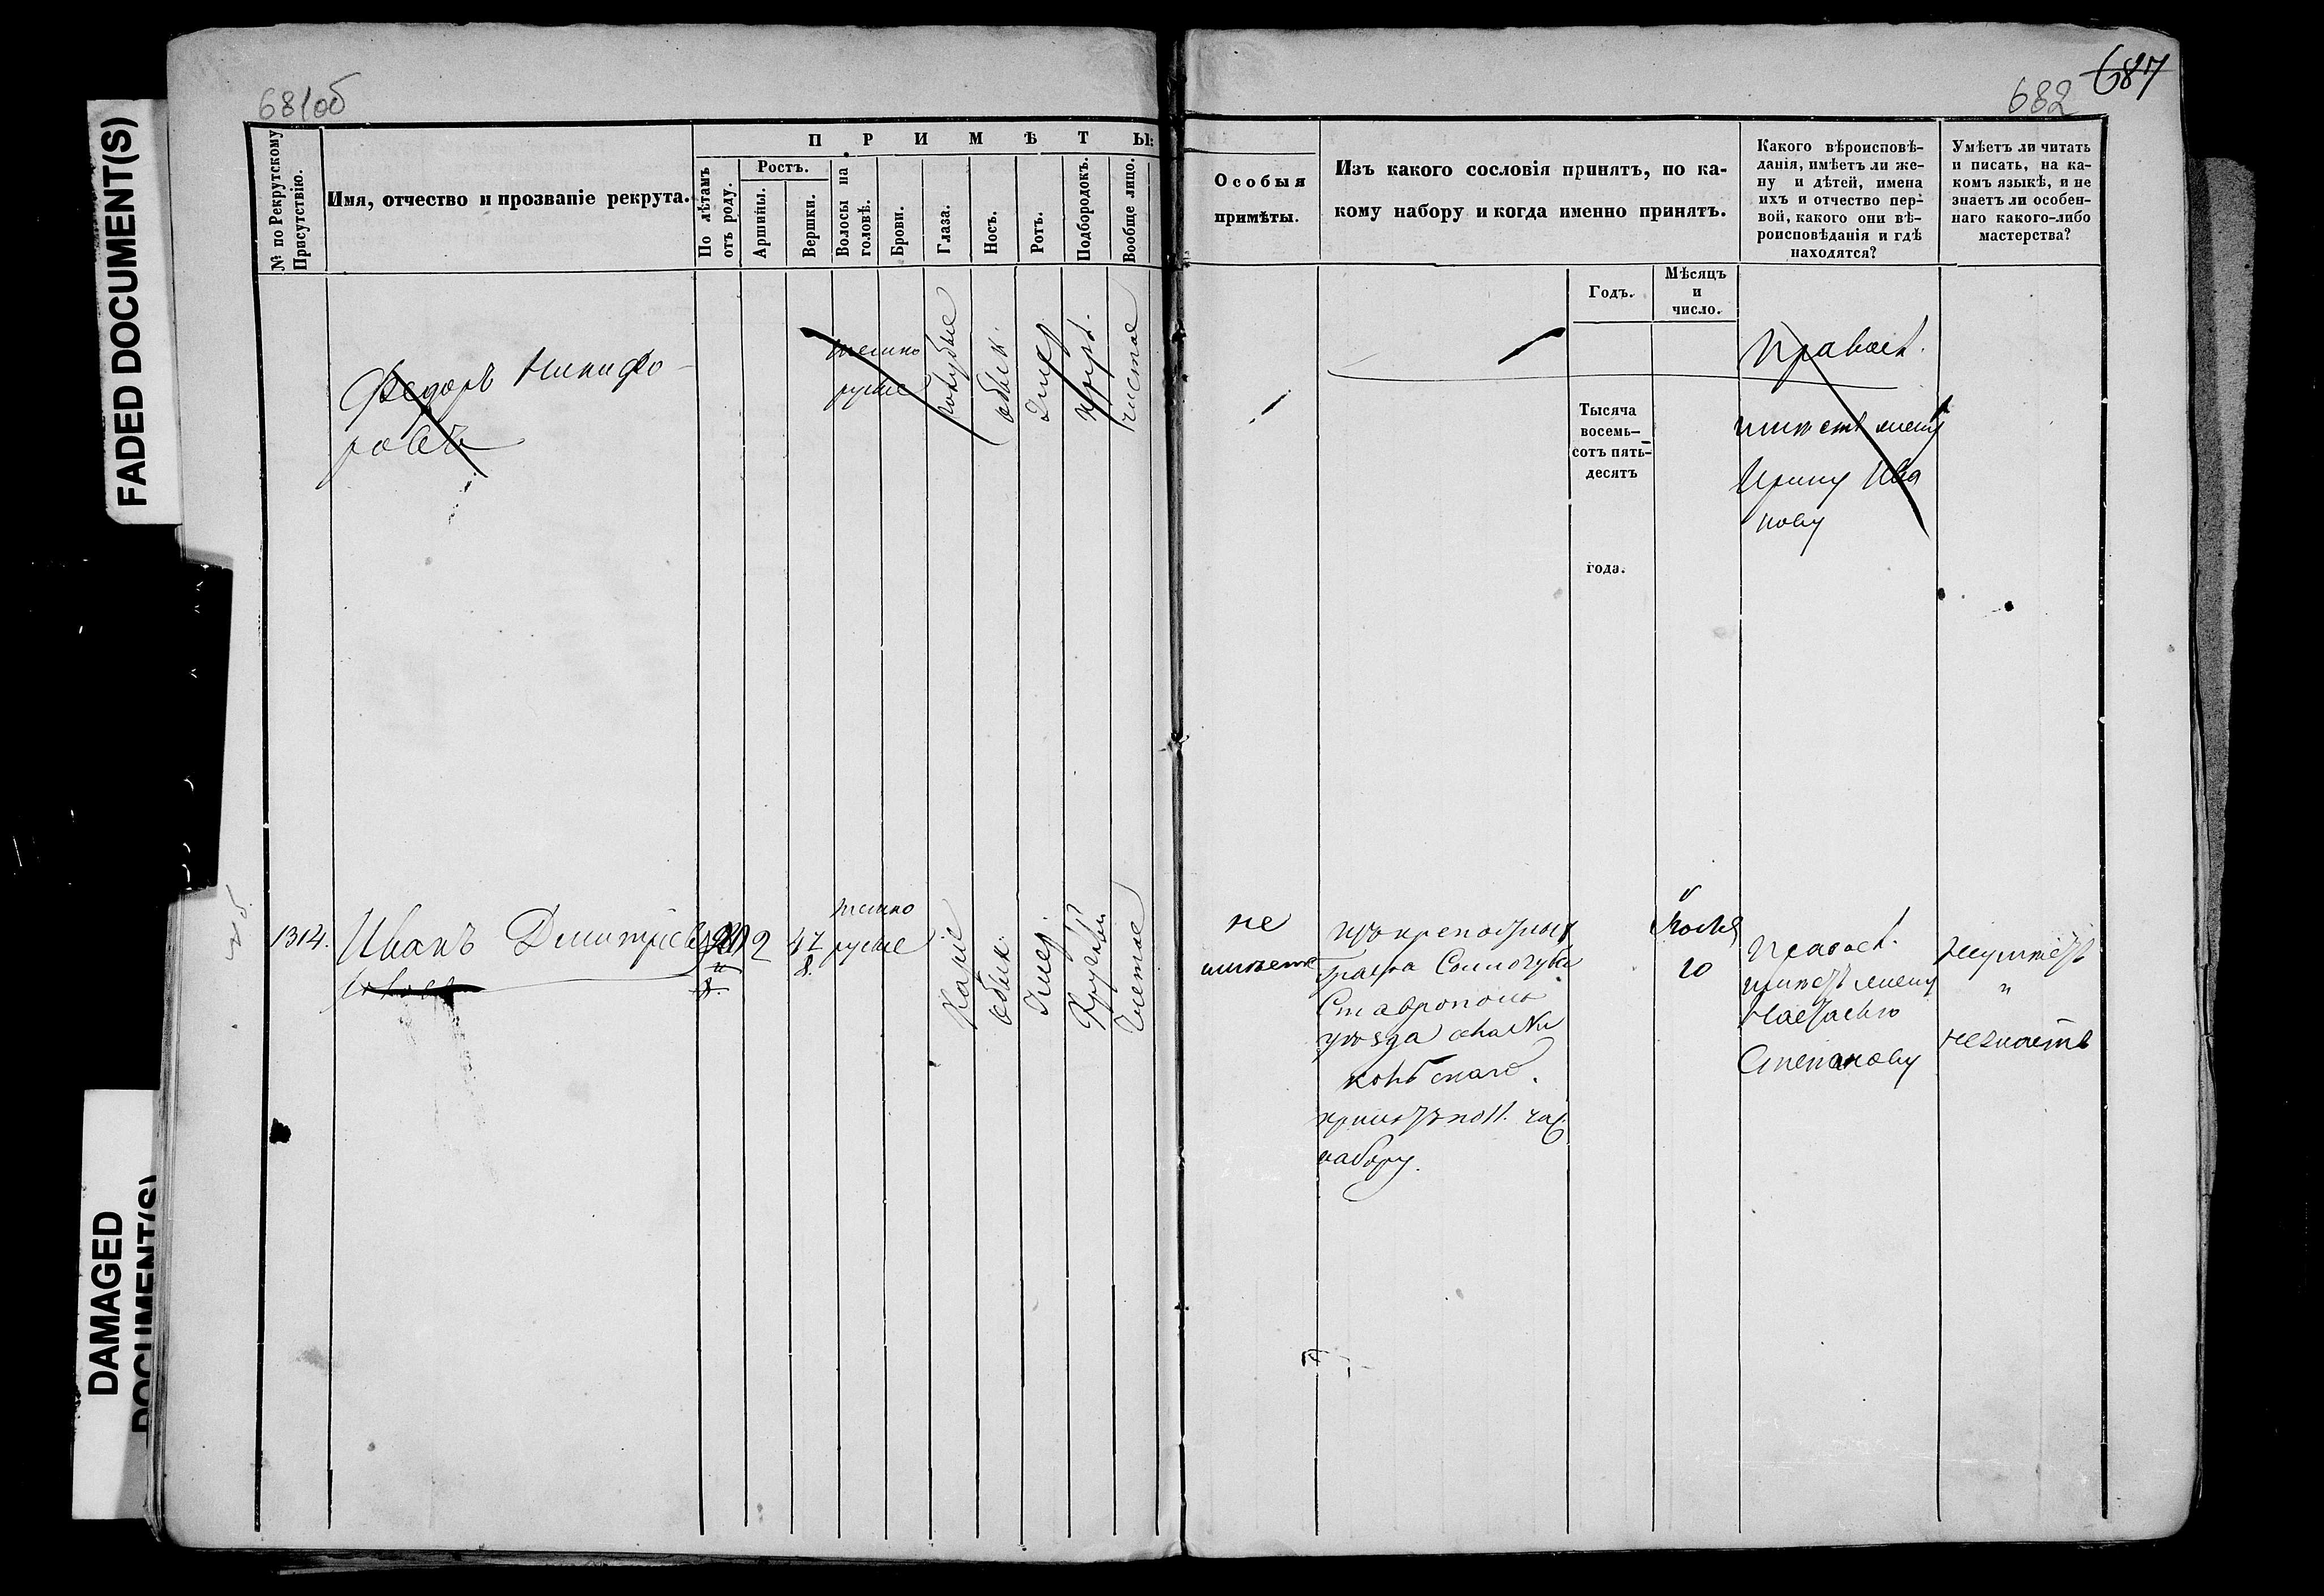 FADED DOCUMENT(S)
DAMAGED
DOCUMENT(S)
681об
682 687
№ по Рекрутскому
Присутствію.
Имя, отчество и прозваніе рекрута.
П Р И М Ѣ Т Ы:
По лѣтамъ
отъ роду.
Ростъ.
Аршины.
Вершки.
Волосы на
головѣ.
Брови.
Глаза.
Носъ.
Ротъ.
Подбородокъ.
Вообще лицо.
Федоръ Никифо-
ровъ
темно
русые
голубые
обык.
чистое
1314.
Иванъ Дмитріевъ
2
темно
русые
Каріе
обык.
Круглый
Чистое
Особыя
примѣты.
Изъ какого сословія принятъ, по ка-
кому набору и когда именно принятъ.
Какого вѣроисповѣ-
данія, имѣетъ ли же-
ну и дѣтей, имена
ихъ и отчество пер-
вой, какого они вѣ-
роисповѣданія и гдѣ
находятся?
Умѣетъ ли читать
и писать, на ка-
комъ языкѣ, и не
знаетъ ли особен-
наго какого-либо
мастерства?
Годъ.
Мѣсяцъ
и
число.
Тысяча
восемь-
сотъ пять-
десятъ
года.
Правосл.
имѣетъ жену
Ирину Ива
нову
не
имѣетъ
Графа Соллогуба
Ставрополь
уѣзда
принятъ по 11. час.
набору.
Правосл.
имѣетъ жену
Настасью
Степанову
неумѣетъ
"
незнаетъ